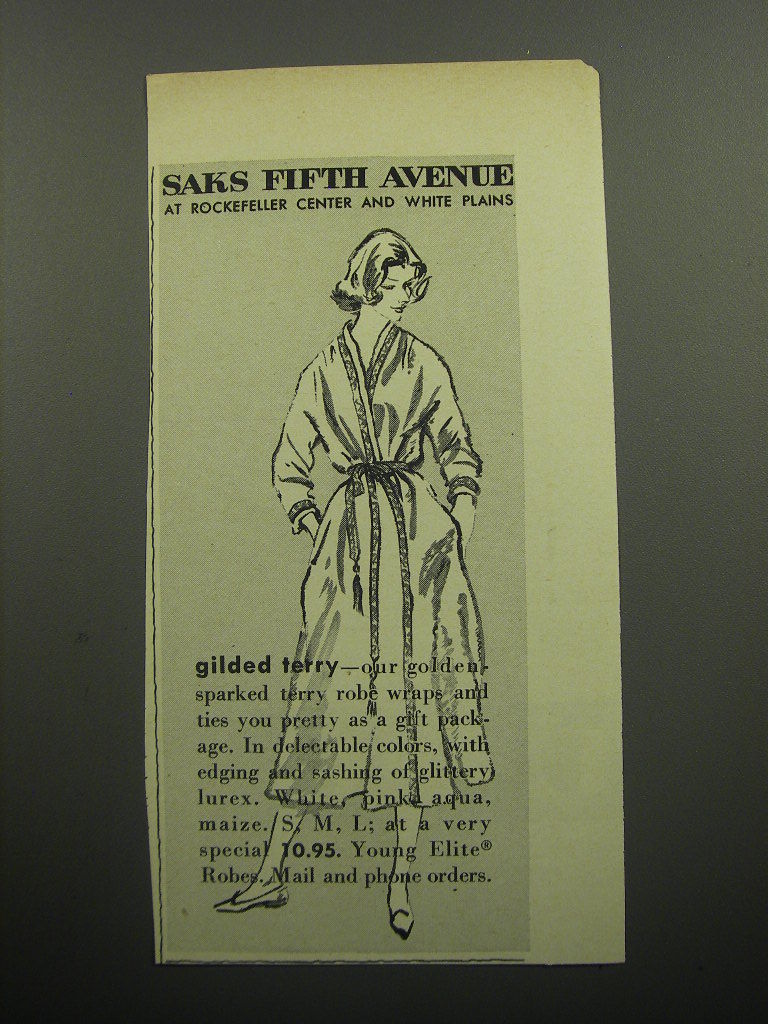 SAKS FIFTH AVENUE
AT ROCKEFELLER CENTER AND WHITE PLAINS
gilded terry—our golden-
sparked terry robe wraps and
ties you pretty as a gift pack-
age. In delectable colors, with
edging and sashing of glittery
lurex. White, pink, aqua,
maize. S, M, L; at a very
special 10.95. Young Elite®
Robes. Mail and phone orders.